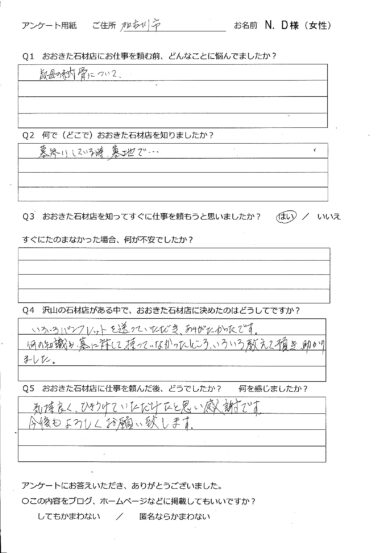 アンケート用紙 ご住所 加古川市 お名前 N.D様（女性）
Q1 おおきた石材店にお仕事を頼む前、どんなことに悩んでましたか？
母の納骨について.
Q2 何で（どこで）おおきた石材店を知りましたか？
墓参りしている時 墓地で…
Q3 おおきた石材店を知ってすぐに仕事を頼もうと思いましたか？ はい ／ いいえ
すぐにたのまなかった場合、何が不安でしたか？
Q4 沢山の石材店がある中で、おおきた石材店に決めたのはどうしてですか？
いろいろパンフレットを送っていただき、ありがたかったです。
何の知識も、墓に対して持っていなかったところ、いろいろ教えて頂き 助かり
ました。
Q5 おおきた石材店に仕事を頼んだ後、どうでしたか？ 何を感じましたか？
気持良く、ひきうけていただけたと思い感謝です
今後もよろしくお願い致します。
アンケートにお答えいただき、ありがとうございました。
〇この内容をブログ、ホームページなどに掲載してもいいですか？
してもかまわない ／ 匿名ならかまわない